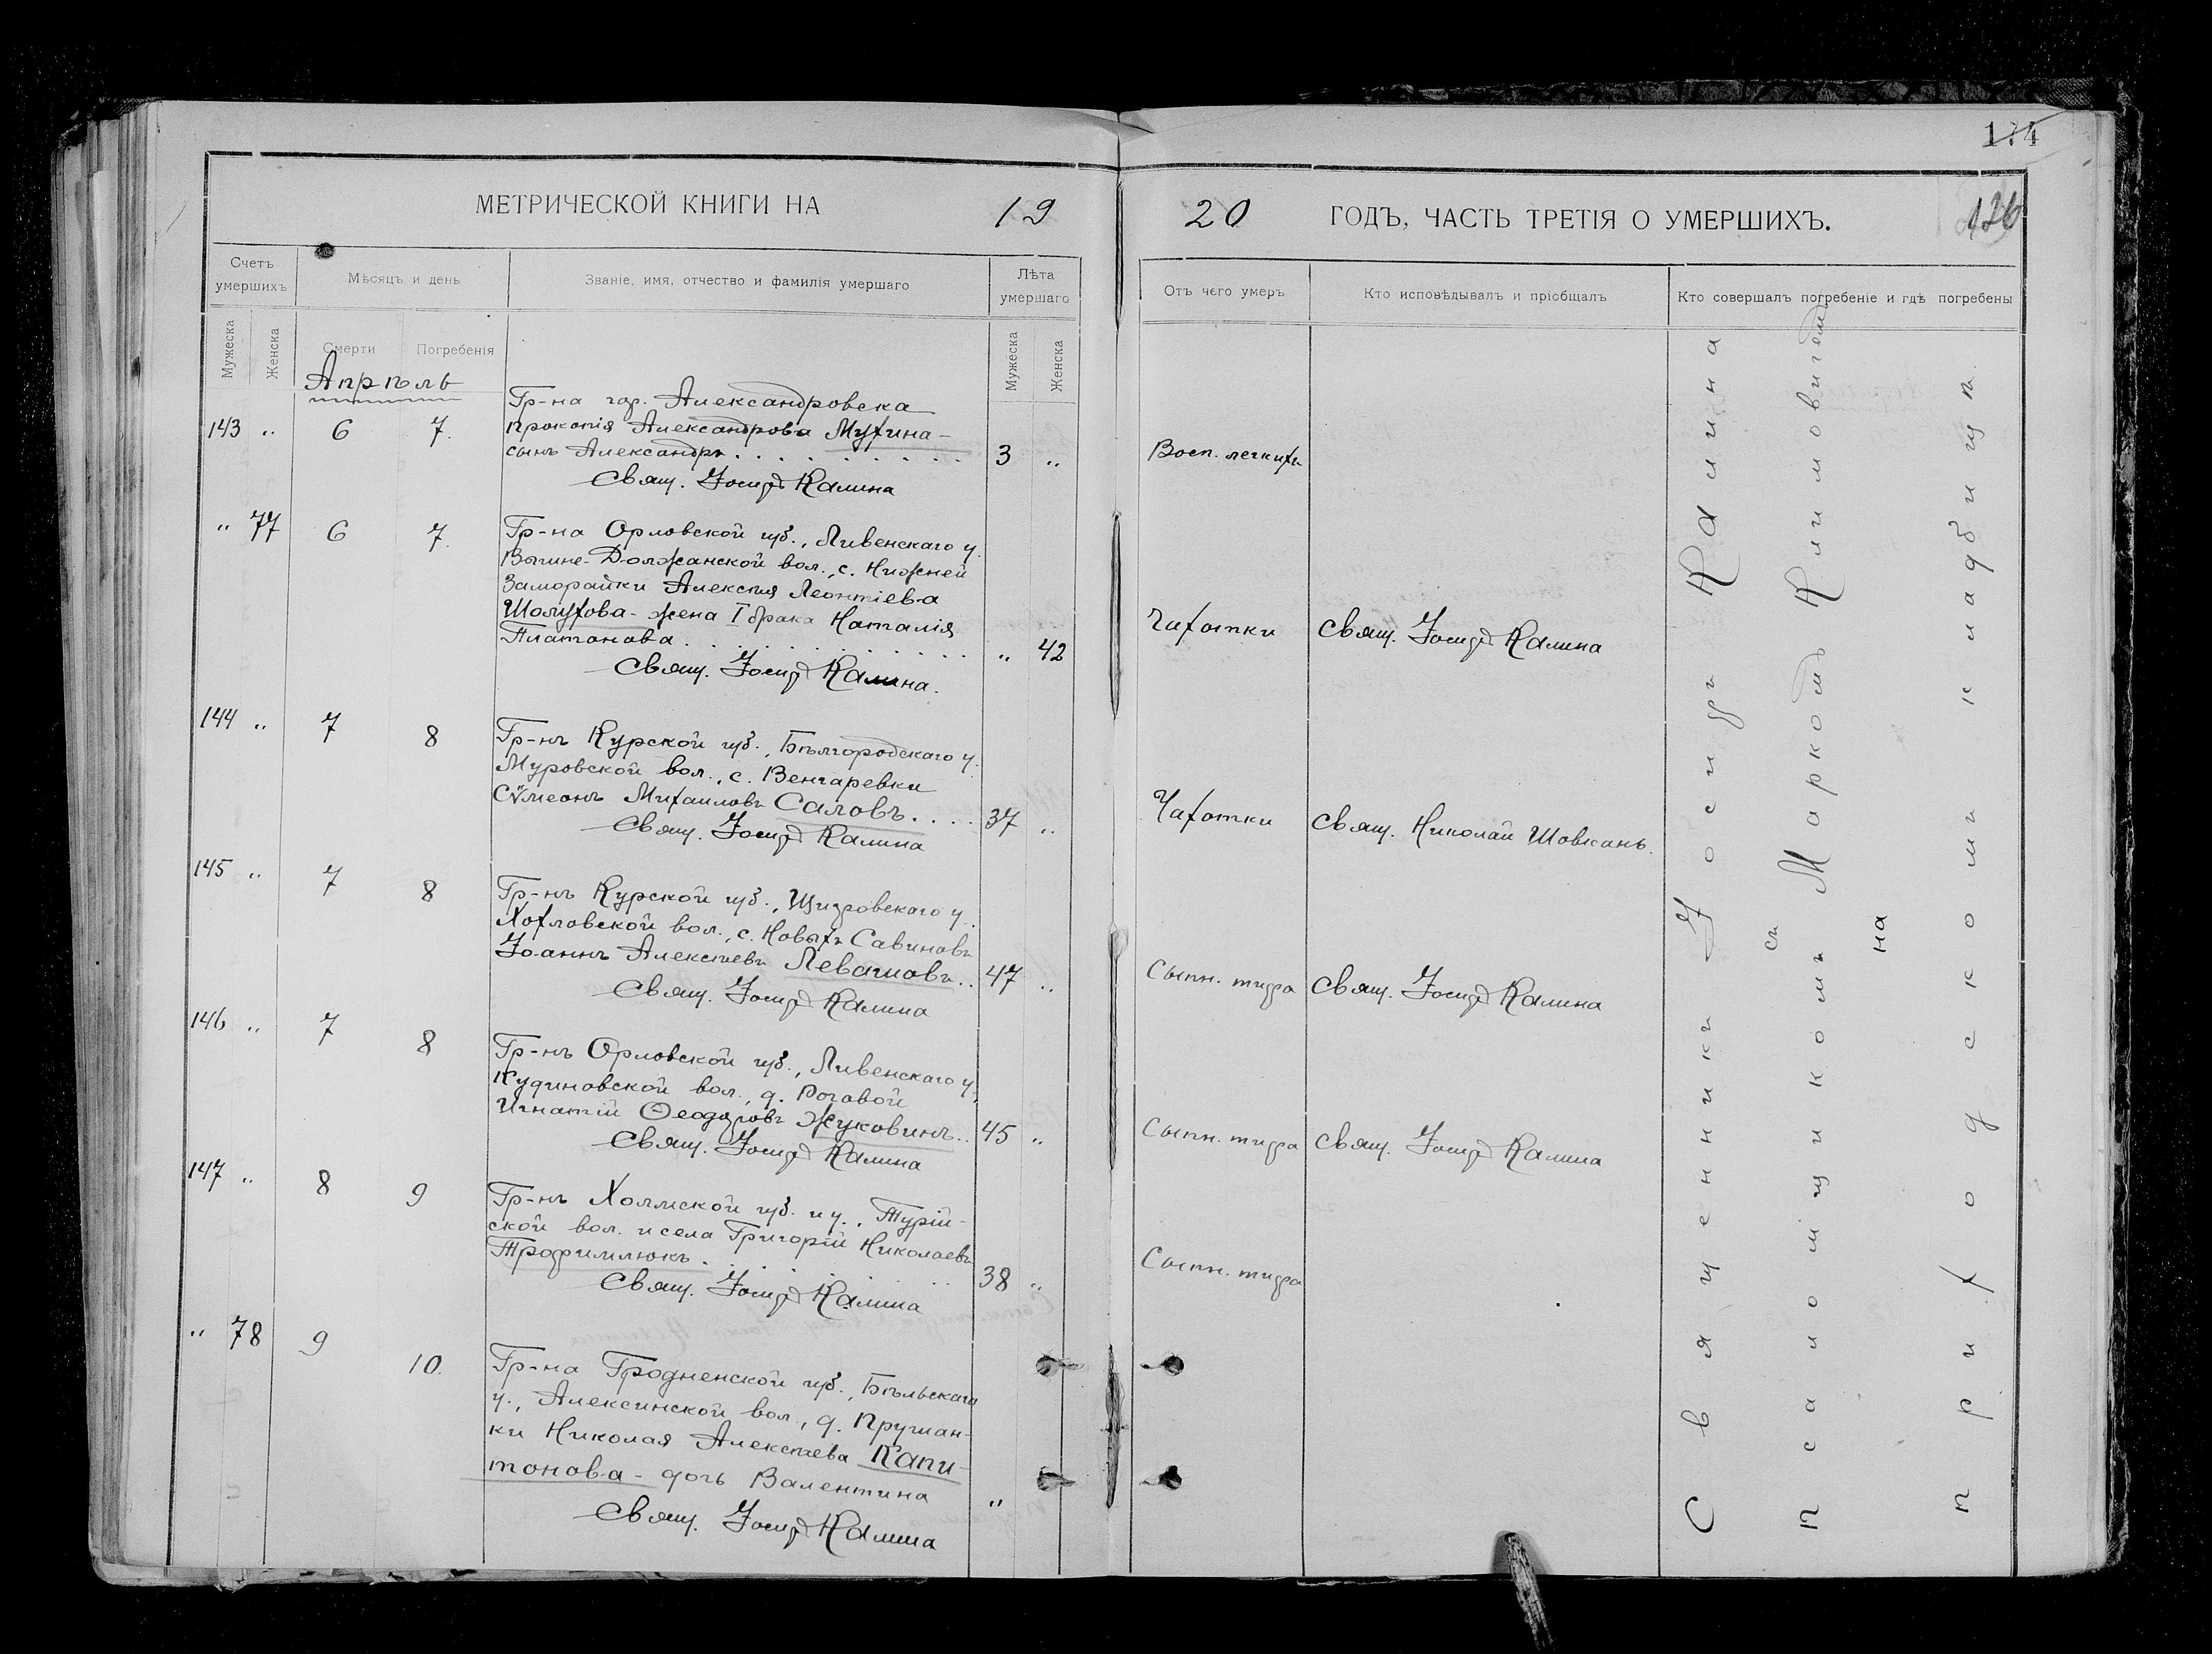 174
МЕТРИЧЕСКОЙ КНИГИ НА 19
20 ГОДЪ, ЧАСТЬ ТРЕТІЯ О УМЕРШИХЪ.
126
Счетъ умершихъ
Мѣсяцъ и день
Званіе, имя, отчество и фамилія умершаго
Лѣта умершаго
Отъ чего умеръ
Кто исповѣдывалъ и пріобщалъ
Кто совершалъ погребеніе и гдѣ погребены
Мужеска
Женска
Смерти
Погребенія
Мужеска
Женска
Апрѣль
143 " 6 7.
Гр-на гор. Александровска
Прокопія Александрова Мухина-
сынъ Александръ . . . . . . . . . 3 "
Восп. легкихъ
Свящ. Іосифъ Калина
" 77 6 7.
Гр-на Орловской губ., Ливенскаго у.
Вышне-Должанской вол., с. Нижней
Заморайки Алексѣя Леонтіева
Шолухова - жена I брака Наталія
Платонова . . . . . . . . . . . " 42
Чахотки
Свящ. Іосифъ Калина
Свящ. Іосифъ Калина.
144 " 7 8
Гр-нъ Курской губ., Бѣлгородскаго у.
Муровской вол., с. Венгаревки
Сѵмеонъ Михаиловъ Саловъ. . . . 37 "
Чахотки
Свящ. Николай Шовкань.
Свящ. Іосифъ Калина
145 " 7 8
Гр-нъ Курской губ., Щигровскаго у.
Хохловской вол., с. Новыхъ Савиновъ
Іоаннъ Алексѣевъ Левашовъ. . 47 "
Сыпн. тифа
Свящ. Іосифъ Калина
Свящ. Іосифъ Калина
146 " 7 8
Гр-нъ Орловской губ., Ливенскаго у.,
Кудиновской вол., д. Роговой
Игнатій Ѳеодоровъ Жуковинъ. . 45 "
Сыпн. тифа
Свящ. Іосифъ Калина
Свящ. Іосифъ Калина
147 " 8 9
Гр-нъ Холмской губ. и у., Турій-
ской вол. и села Григорій Николаевъ
Трофимлюкъ . . . . . . . 38 "
Сыпн. тифа
Свящ. Іосифъ Калина
" 78 9 10.
Гр-на Гродненской губ., Бѣльскаго
у., Алексинской вол., д. Пружан-
ки Николая Алексѣева Капи-
тонова - дочь Валентина "
Свящ. Іосифъ Калина
Священникъ Іосифъ Калина
съ
псаломщикомъ Маркомъ Климовичемъ
на
приходскомъ кладбищѣ.